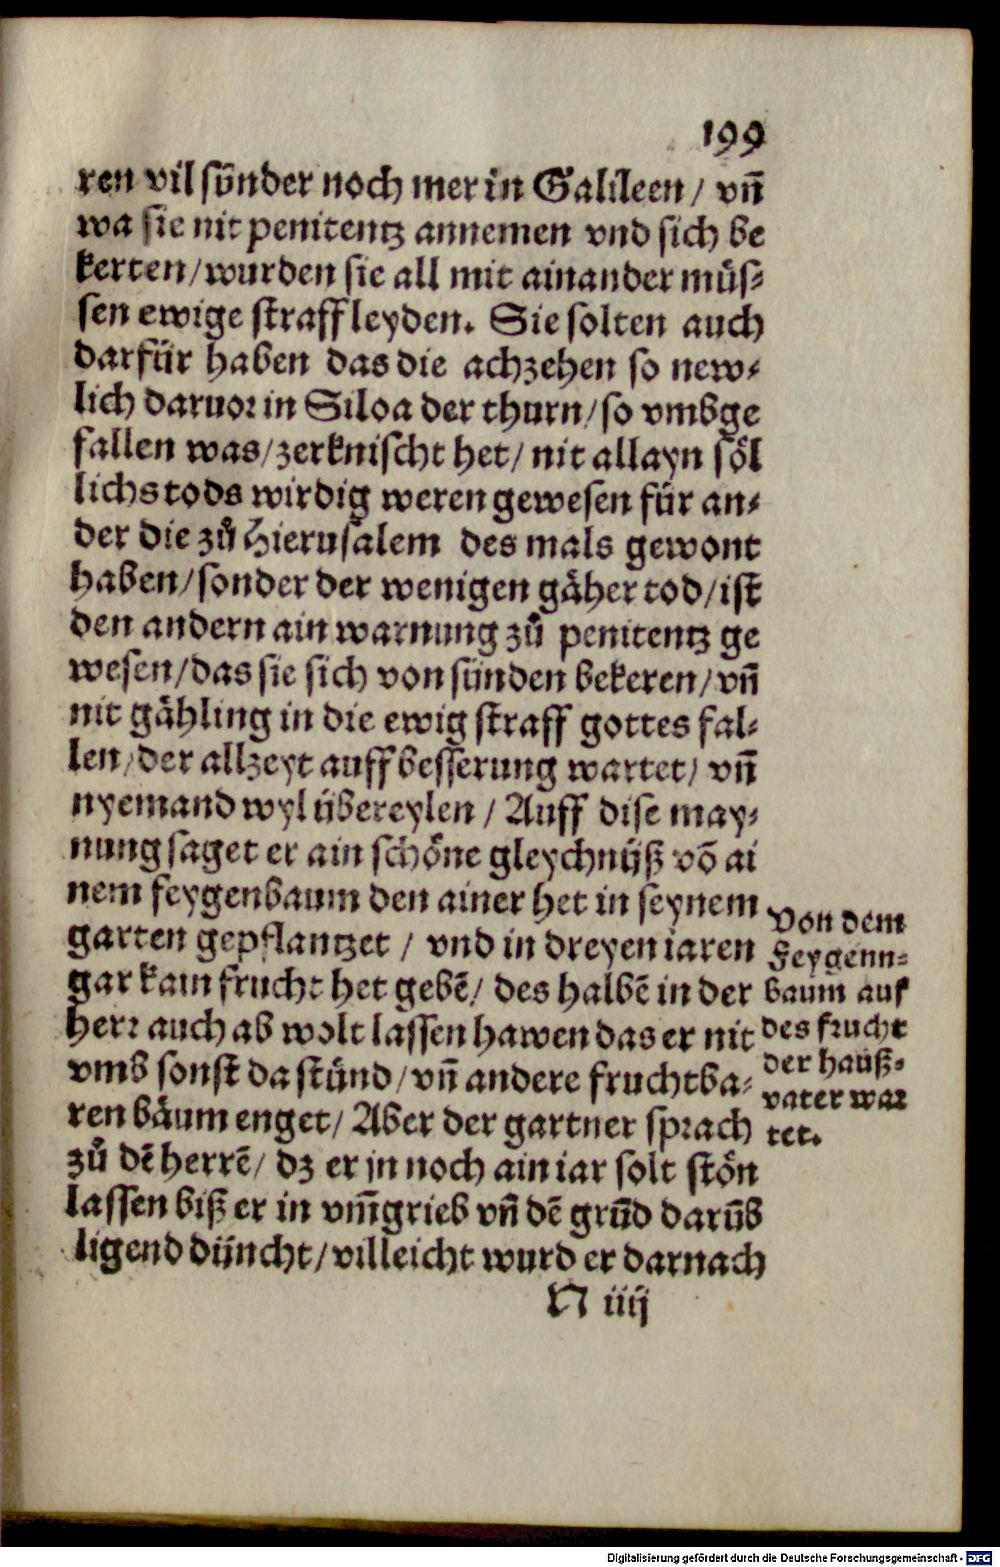 199
ren vil sünder noch mer in Galileen / vñ
wa sie nit penitentz annemen vnd sich be
kerten / wurden sie all mit ainander müs⸗
sen ewige straff leyden. Sie solten auch
darfür haben das die achzehen so new⸗
lich daruor in Siloa der thurn / so vmbge
fallen was / zerknischt het / nit allayn söl
lichs tods wirdig weren gewesen für an⸗
der die zů Hierusalem des mals gewont
haben / sonder der wenigen gäher tod / ist
den andern ain warnung zů penitentz ge
wesen / das sie sich von sünden bekeren / vñ
nit gähling in die ewig straff gottes fal⸗
len / der allzeyt auff besserung wartet / vñ
nyemand wyl übereylen / Auff dise may⸗
nung saget er ain schöne gleychnüß võ ai
nem feygenbaum den ainer het in seynem
garten gepflantzet / vnd in dreyen iaren
gar kain frucht het gebẽ / des halbẽ in der
herr auch ab wolt lassen hawen das er nit
vmb sonst da stünd / vñ andere fruchtba⸗
ren bäum enget / Aber der gartner sprach
zů dẽ herrẽ / dz er jn noch ain iar solt stön
lassen biß er in vm̃grieb vñ dẽ grũd darũb
ligend düncht / villeicht wurd er darnach
N iiij
Von dem
Feygenn⸗
baum auf
des frucht
der hauß⸗
vater war
tet.
Digitalisierung gefördert durch die Deutsche Forschungsgemeinschaft - DFG